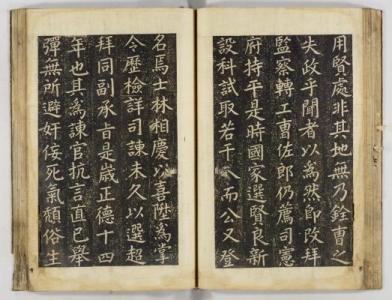 用賢處非其地無乃銓曹之
失政乎聞者以爲然即改拜
監察轉工曹佐郎仍薦司憲
府持平是時國家選賢良新
設科試取若干人而公又登
名焉士林相慶以喜陞爲掌
令歷檢詳司諫未久以選超
拜同副承旨是歲正德十四
年也其爲諫官抗言直已舉
彈無所避奸佞死氣頹俗生